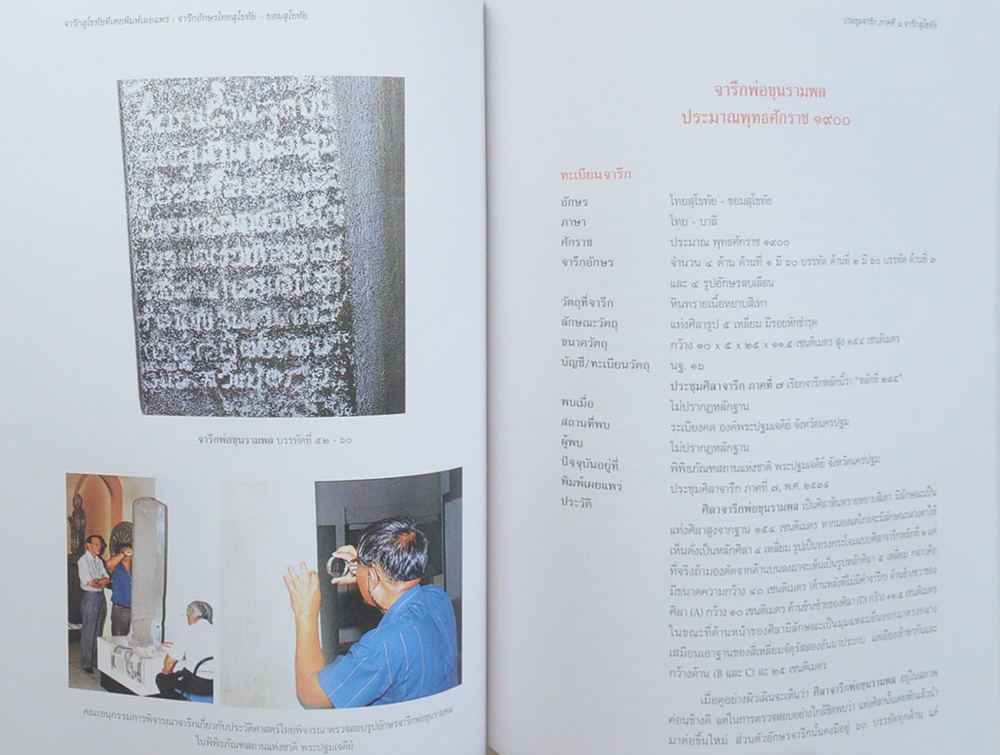 จารึกสุโขทัยที่เคยพิมพ์เผยแพร่ : จารึกอักษรไทยสุโขทัย - ขอมสุโขทัย
จารึกพ่อขุนรามพล บรรทัดที่ ๕๒ - ๖๐
คณะอนุกรรมการพิจารณาจารึกเกี่ยวกับประวัติศาสตร์ไทยพิจารณาตรวจสอบรูปอักษรจารึกพ่อขุนรามพล
ในพิพิธภัณฑสถานแห่งชาติ พระปฐมเจดีย์
ประชุมจารึก ภาคที่ ๘ จารึกสุโขทัย
จารึกพ่อขุนรามพล
ประมาณพุทธศักราช ๑๙๐๐
ทะเบียนจารึก
อักษร ไทยสุโขทัย - ขอมสุโขทัย
ภาษา ไทย - บาลี
ศักราช ประมาณ พุทธศักราช ๑๙๐๐
จารึกอักษร จำนวน ๔ ด้าน ด้านที่ ๑ มี ๖๐ บรรทัด ด้านที่ ๒ มี ๖๐ บรรทัด ด้านที่ ๓
และ ๔ รูปอักษรลบเลือน
วัตถุที่จารึก หินทรายเนื้อหยาบสีเทา
ลักษณะวัตถุ แท่งศิลารูป ๕ เหลี่ยม มีรอยหักชำรุด
ขนาดวัตถุ กว้าง ๑๐ x ๕ x ๒๕ x ๑๑.๕ เซนติเมตร สูง ๑๕๔ เซนติเมตร
บัญชี/ทะเบียนวัตถุ นฐ. ๑๖
ประชุมศิลาจารึก ภาคที่ ๗ เรียกจารึกหลักนี้ว่า "หลักที่ ๒๘๕"
พบเมื่อ ไม่ปรากฏหลักฐาน
สถานที่พบ ระเบียงคด องค์พระปฐมเจดีย์ จังหวัดนครปฐม
ผู้พบ ไม่ปรากฏหลักฐาน
ปัจจุบันอยู่ที่ พิพิธภัณฑสถานแห่งชาติ พระปฐมเจดีย์ จังหวัดนครปฐม
พิมพ์เผยแพร่ ประชุมศิลาจารึก ภาคที่ ๗, พ.ศ. ๒๕๓๔
ประวัติ
ศิลาจารึกพ่อขุนรามพล เป็นศิลาหินทรายหยาบสีเทา มีลักษณะเป็น
แท่งศิลาสูงจากฐาน ๑๕๔ เซนติเมตร หากมองแต่ไกลจะมีลักษณะลวงตาให้
เห็นดั่งเป็นหลักศิลา ๔ เหลี่ยม รูปเป็นทรงกระโจมแบบศิลาจารึกหลักที่ ๑ แต่
ที่จริงถ้ามองตัดจากด้านบนลงมาจะเห็นเป็นรูปหลักศิลา ๕ เหลี่ยม กล่าวคือ
มีขนาดความกว้าง ๔๐ เซนติเมตร (ด้านหลังที่ไม่มีคำจารึก) ด้านข้างขวาของ
ศิลา (A) กว้าง ๑๐ เซนติเมตร ด้านข้างซ้ายของศิลา (D) กว้าง ๑๑.๕ เซนติเมตร
ในขณะที่ด้านหน้าของศิลามีลักษณะเป็นมุมแหลมยื่นออกมาตรงกลาง
เสมือนเอาฐานของสี่เหลี่ยมจัตุรัสสองอันมาประกบ แต่เอียงเข้าหากันและ
กว้างด้าน (B และ C) ละ ๒๕ เซนติเมตร
เมื่อดูอย่างผิวเผินจะเห็นว่า ศิลาจารึกพ่อขุนรามพล อยู่ในสภาพ
ค่อนข้างดี แต่ในการตรวจสอบอย่างใกล้ชิดพบว่า แท่งศิลานั้นเคยหักแล้วนำ
มาต่อขึ้นใหม่ ส่วนตัวอักษรจารึกนั้นคงมีอยู่ ๖๐ บรรทัดทุกด้าน แต่